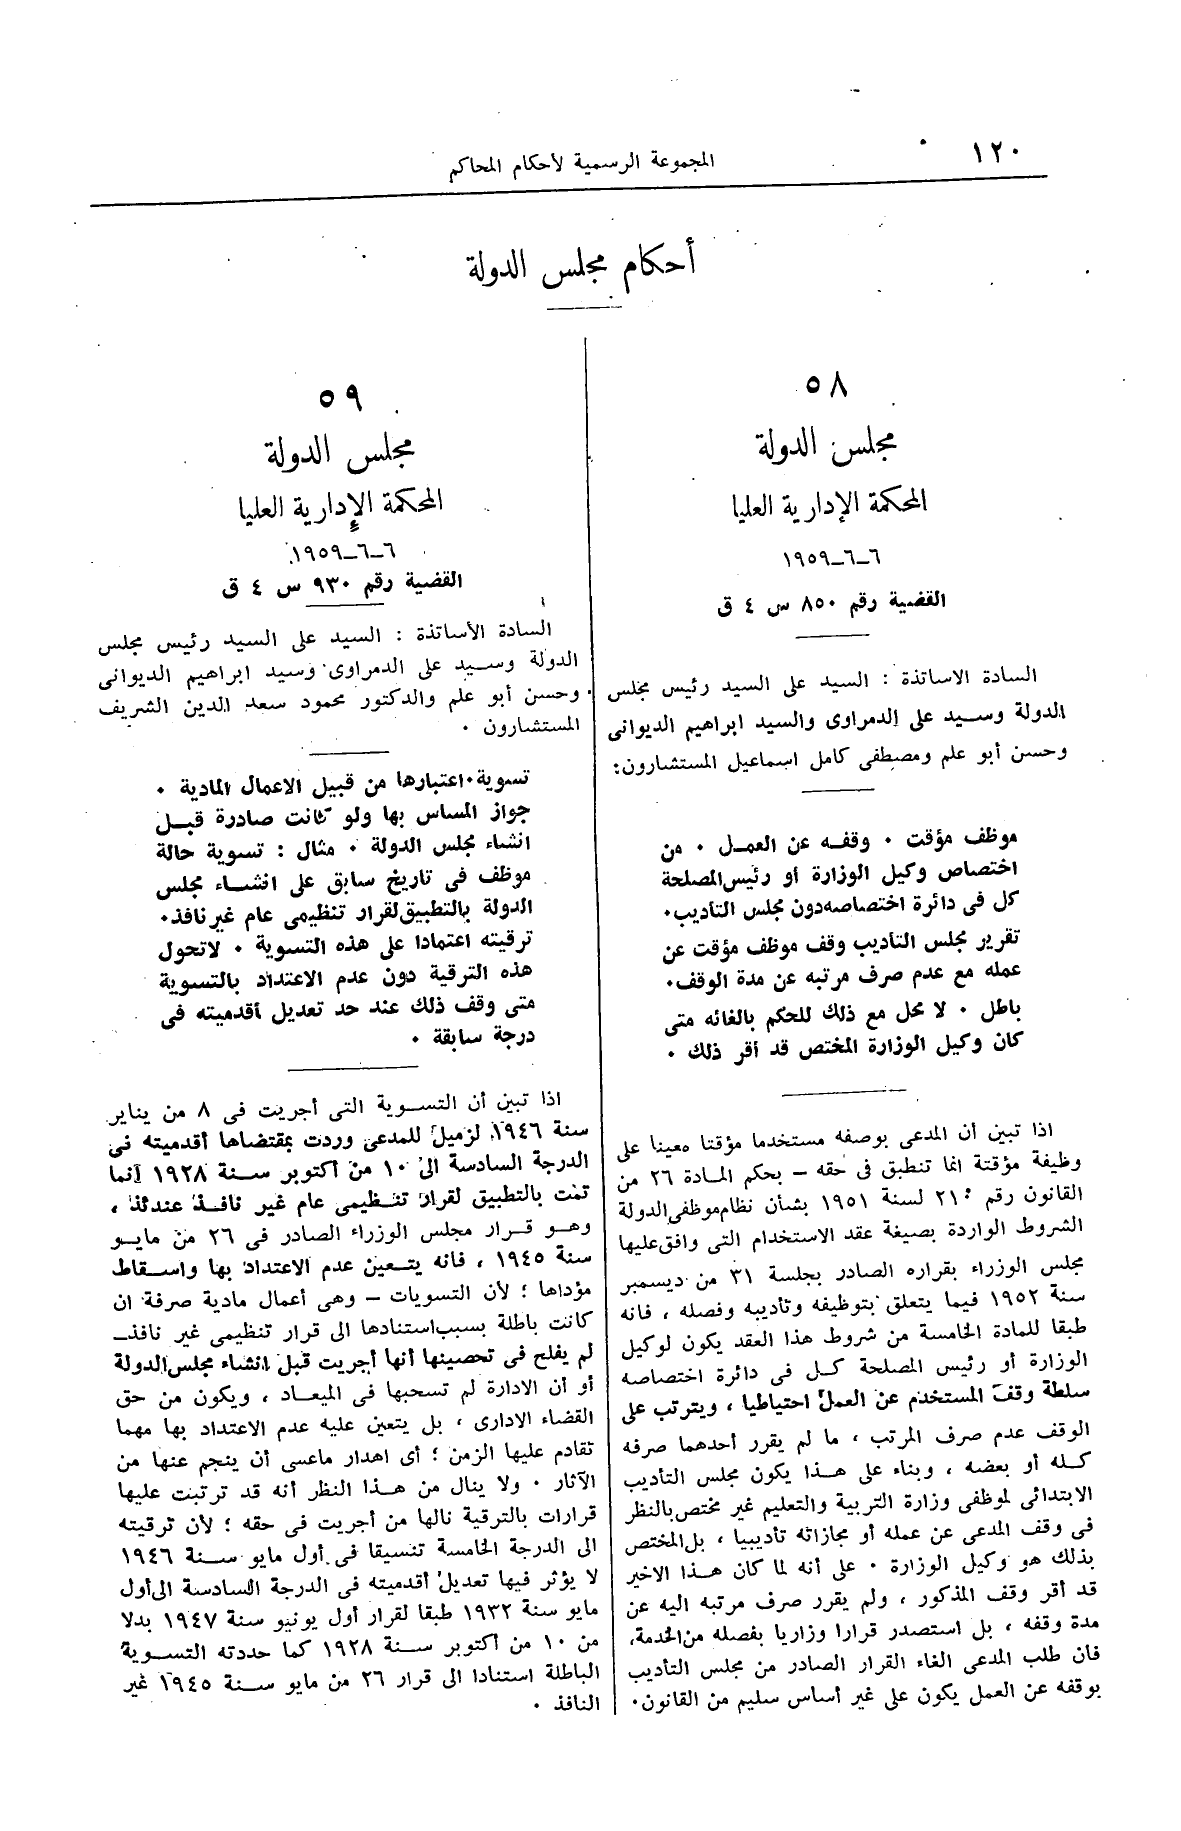 ١٢٠
المجموعة الرسمية لأحكام المحاكم
أحكام مجلس الدولة
٥٨
مجلس الدولة
المحكمة الإدارية العليا
٦-٦-١٩٥٩
القضية رقم ٨٥٠ س ٤ ق
السادة الاساتذة : السيد على السيد رئيس مجلس
الدولة وسيد على الدمراوى والسيد ابراهيم الديوانى
وحسن أبو علم ومصطفى كامل اسماعيل المستشارون :
موظف مؤقت ٠ وقفه عن العمل ٠ من
اختصاص وكيل الوزارة أو رئيس المصلحة
كل فى دائرة اختصاصه دون مجلس التأديب ٠
تقرير مجلس التأديب وقف موظف مؤقت عن
عمله مع عدم صرف مرتبه عن مدة الوقف ٠
باطل ٠ لا محل مع ذلك للحكم بالغائه متى
كان وكيل الوزارة المختص قد أقر ذلك ٠
اذا تبين أن المدعى بوصفه مستخدما مؤقتا معينا على
وظيفة مؤقتة انما تنطبق فى حقه – بحكم المادة ٢٦ من
القانون رقم ٢١٠ لسنة ١٩٥١ بشأن نظام موظفى الدولة
الشروط الواردة بصيغة عقد الاستخدام التى وافق عليها
مجلس الوزراء بقراره الصادر بجلسة ٣١ من ديسمبر
سنة ١٩٥٢ فيما يتعلق بتوظيفه وتأديبه وفصله ، فانه
طبقا للمادة الخامسة من شروط هذا العقد يكون لوكيل
الوزارة أو رئيس المصلحة كل فى دائرة اختصاصه
سلطة وقف المستخدم عن العمل احتياطيا ، ويترتب على
الوقف عدم صرف المرتب ، ما لم يقرر أحدهما صرفه
كله أو بعضه ، وبناء على هذا يكون مجلس التأديب
الابتدائى لموظفى وزارة التربية والتعليم غير مختص بالنظر
فى وقف المدعى عن عمله أو مجازاته تأديبيا ، بل المختص
بذلك هو وكيل الوزارة ٠ على أنه لما كان هذا الاخير
قد أقر وقف المذكور ، ولم يقرر صرف مرتبه اليه عن
مدة وقفه ، بل استصدر قرارا وزاريا بفصله من الخدمة،
فان طلب المدعى الغاء القرار الصادر من مجلس التأديب
بوقفه عن العمل يكون على غير أساس سليم من القانون ٠
٥٩
مجلس الدولة
المحكمة الإدارية العليا
٦-٦-١٩٥٩
القضية رقم ٩٣٠ س ٤ ق
السادة الأساتذة : السيد على السيد رئيس مجلس
الدولة وسيد على الدمراوى وسيد ابراهيم الديوانى
وحسن أبو علم والدكتور محمود سعد الدين الشريف
المستشارون ٠
تسوية ٠ اعتبارها من قبيل الاعمال المادية ٠
جواز المساس بها ولو كانت صادرة قبل
انشاء مجلس الدولة ٠ مثال : تسوية حالة
موظف فى تاريخ سابق على انشاء مجلس
الدولة بالتطبيق لقرار تنظيمى عام غير نافذ ٠
ترقيته اعتمادا على هذه التسوية ٠ لا تحول
هذه الترقية دون عدم الاعتداد بالتسوية
متى وقف ذلك عند حد تعديل أقدميته فى
درجة سابقة ٠
اذا تبين أن التسوية التى أجريت فى ٨ من يناير
سنة ١٩٤٦ لزميل للمدعى وردت بمقتضاها أقدميته فى
الدرجة السادسة الى ١٠ من أكتوبر سنة ١٩٢٨ انما
تمت بالتطبيق لقرار تنظيمى عام غير نافذ عندئذ ،
وهو قرار مجلس الوزراء الصادر فى ٢٦ من مايو
سنة ١٩٤٥ ، فانه يتعين عدم الاعتداد بها واسقاط
مؤداها ؛ لأن التسويات – وهى أعمال مادية صرفة ان
كانت باطلة بسبب استنادها الى قرار تنظيمى غير نافذ –
لم يفلح فى تحصينها أنها أجريت قبل انشاء مجلس الدولة
أو أن الادارة لم تسحبها فى الميعاد ، ويكون من حق
القضاء الادارى ، بل يتعين عليه عدم الاعتداد بها مهما
تقادم عليها الزمن ؛ أى اهدار ماعسى أن ينجم عنها من
الآثار ٠ ولا ينال من هذا النظر أنه قد ترتبت عليها
قرارات بالترقية نالها من أجريت فى حقه ؛ لأن ترقيته
الى الدرجة الخامسة تنسيقا فى أول مايو سنة ١٩٤٦
لا يؤثر فيها تعديل أقدميته فى الدرجة السادسة الى أول
مايو سنة ١٩٣٢ طبقا لقرار أول يونيو سنة ١٩٤٧ بدلا
من ١٠ من أكتوبر سنة ١٩٢٨ كما حددته التسوية
الباطلة استنادا الى قرار ٢٦ من مايو سنة ١٩٤٥ غير
النافذ ٠